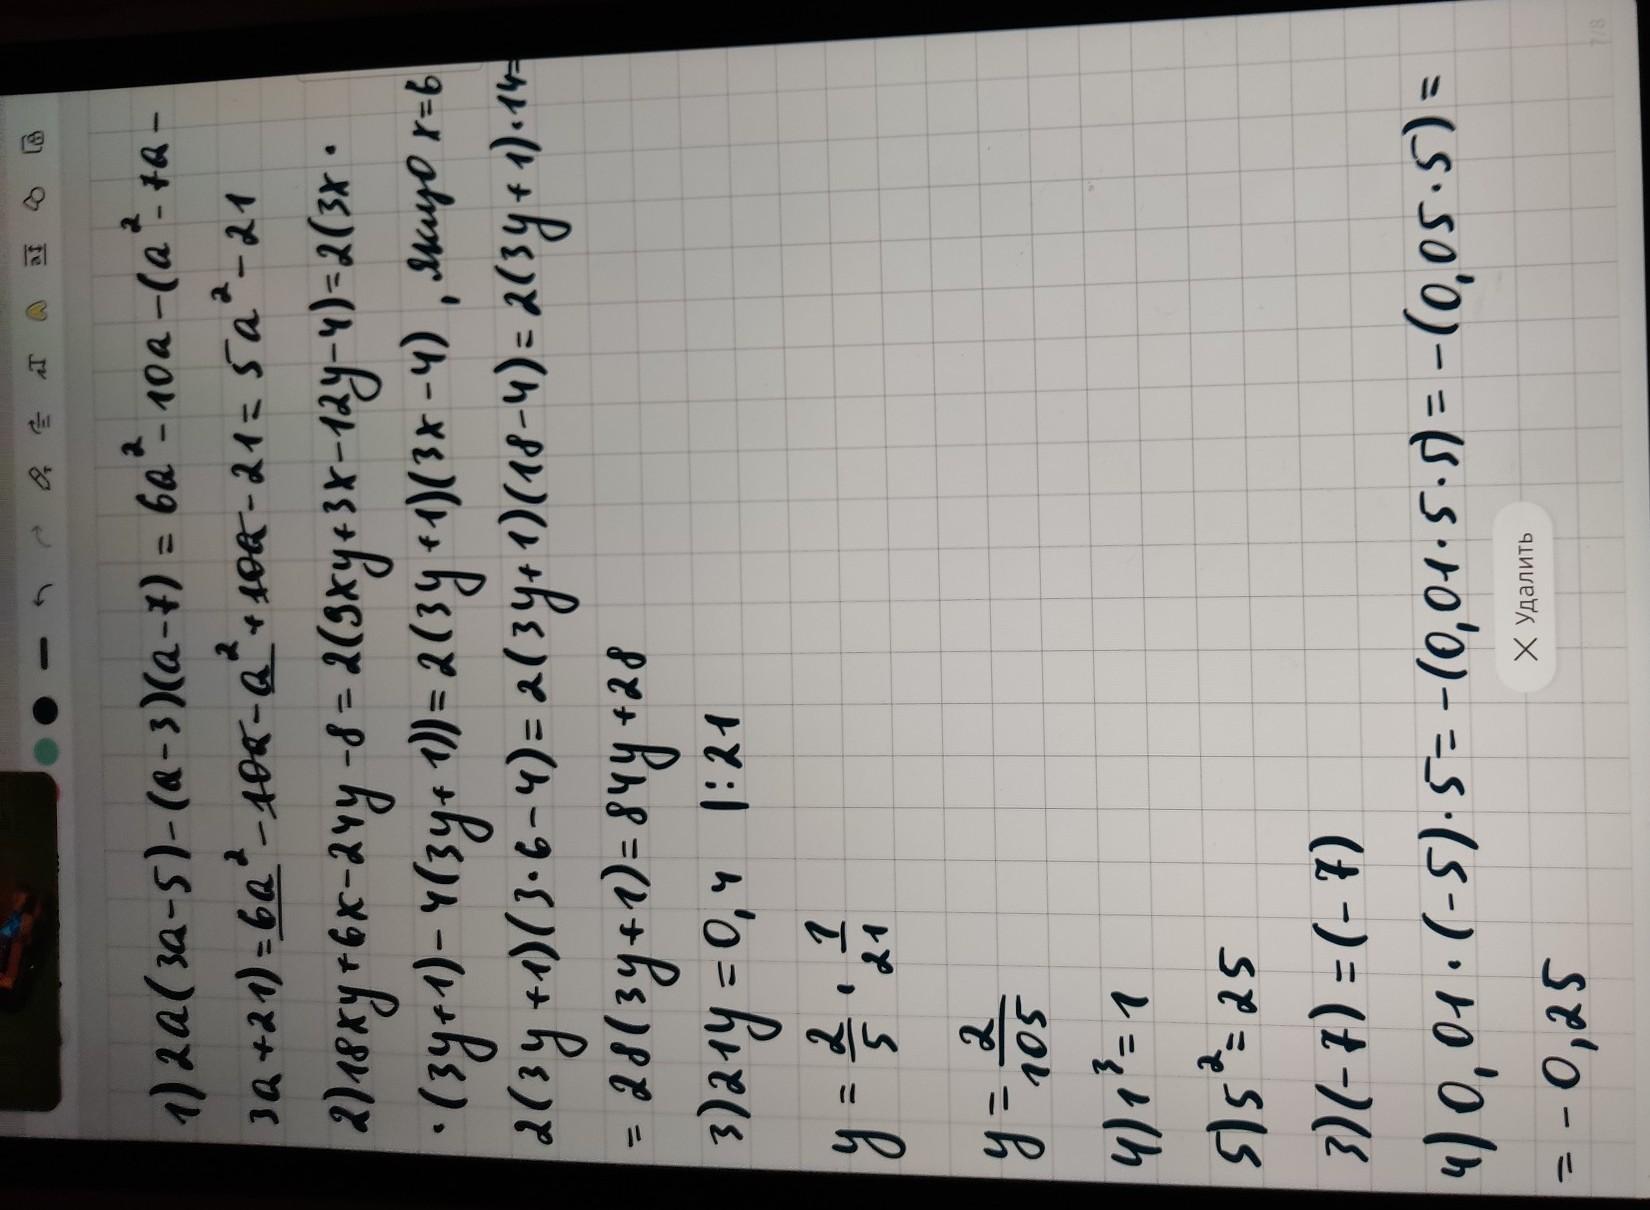 1) 2a(3a-5)-(a-3)(a-7) = 6a²-10a-(a²-7a-
3a+21) = 6a²-10a-a²+10a-21 = 5a²-21
2) 18xy+6x-24y-8 = 2(9xy+3x-12y-4) = 2(3x·
·(3y+1)-4(3y+1)) = 2(3y+1)(3x-4), якщо x=6
2(3y+1)(3·6-4) = 2(3y+1)(18-4) = 2(3y+1)·14=
= 28(3y+1) = 84y+28
3) 21y = 0,4 |:21
y = 2/5 · 1/21
y = 2/105
4) 1³ = 1
5) 5² = 25
3) (-7) = (-7)
4) 0,01·(-5)·5 = -(0,01·5·5) = -(0,05·5) =
= -0,25
× Удалить
7/8